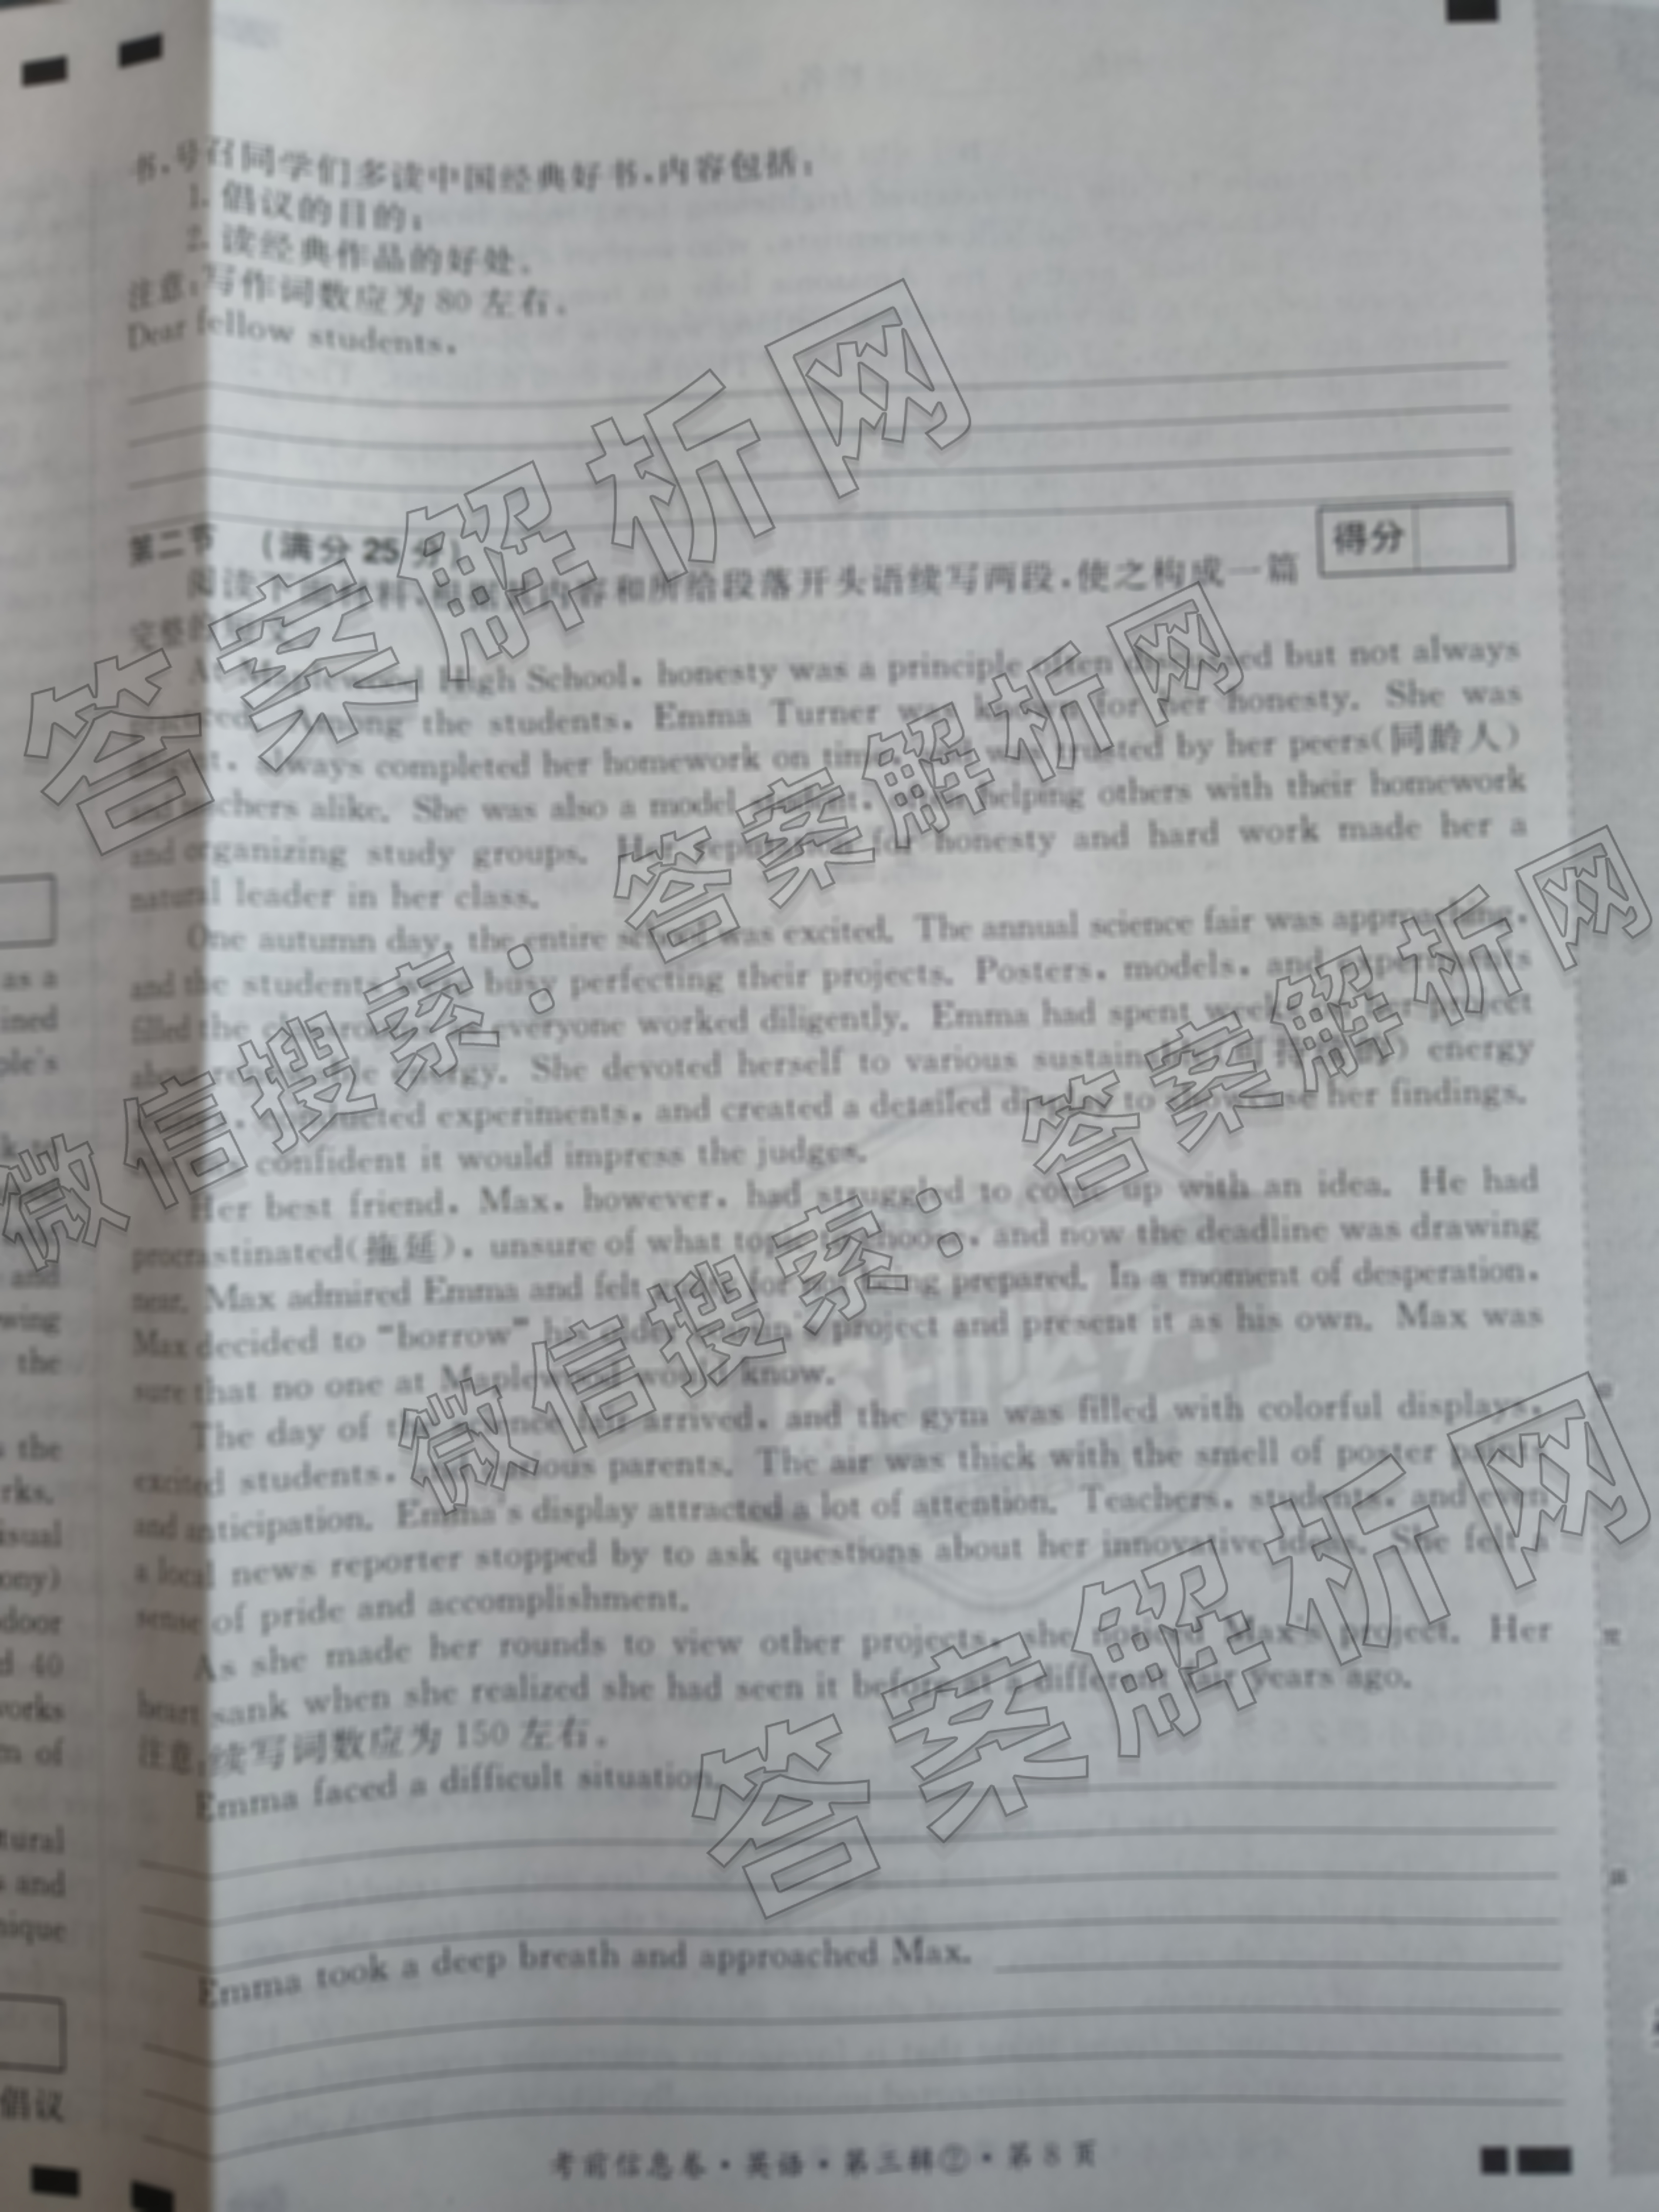 书,号召同学们多读中国经典好书,内容包括:
1. 倡议的目的;
2. 读经典作品的好处。
注意:写作词数应为 80 左右。
Dear fellow students,
第二节 (满分 25 分)
得分
阅读下面材料,根据其内容和所给段落开头语续写两段,使之构成一篇
完整的短文。
At Maplewood High School, honesty was a principle often discussed but not always
practiced. Among the students, Emma Turner was known for her honesty. She was
always completed her homework on time, and was trusted by her peers(同龄人)
and teachers alike. She was also a model student, often helping others with their homework
and organizing study groups. Her reputation for honesty and hard work made her a
natural leader in her class.
One autumn day, the entire school was excited. The annual science fair was approaching,
and the students were busy perfecting their projects. Posters, models, and experiments
filled the classrooms as everyone worked diligently. Emma had spent weeks on her project
about renewable energy. She devoted herself to various sustainable(可持续的) energy
conducted experiments, and created a detailed display to showcase her findings.
She was confident it would impress the judges.
Her best friend, Max, however, had struggled to come up with an idea. He had
procrastinated(拖延), unsure of what topic to choose, and now the deadline was drawing
near. Max admired Emma and felt for not being prepared. In a moment of desperation,
Max decided to "borrow" his older cousin's project and present it as his own. Max was
sure that no one at Maplewood would know.
The day of the science fair arrived, and the gym was filled with colorful displays,
excited students, and curious parents. The air was thick with the smell of poster paints
and anticipation. Emma's display attracted a lot of attention. Teachers, students, and even
a local news reporter stopped by to ask questions about her innovative ideas. She felt a
sense of pride and accomplishment.
As she made her rounds to view other projects, she noticed Max's project. Her
heart sank when she realized she had seen it before at a different fair years ago.
注意:续写词数应为 150 左右。
Emma faced a difficult situation.
Emma took a deep breath and approached Max.
考前信息卷·英语·第三辑②·第 8 页
as a
ined
ple's
and
wing
the
s the
rks.
isual
ony)
door
d 40
works
m of
tural
s and
nique
倡议
答案解析网
微信搜索:答案解析网
微信搜索:答案解析网
答案解析网